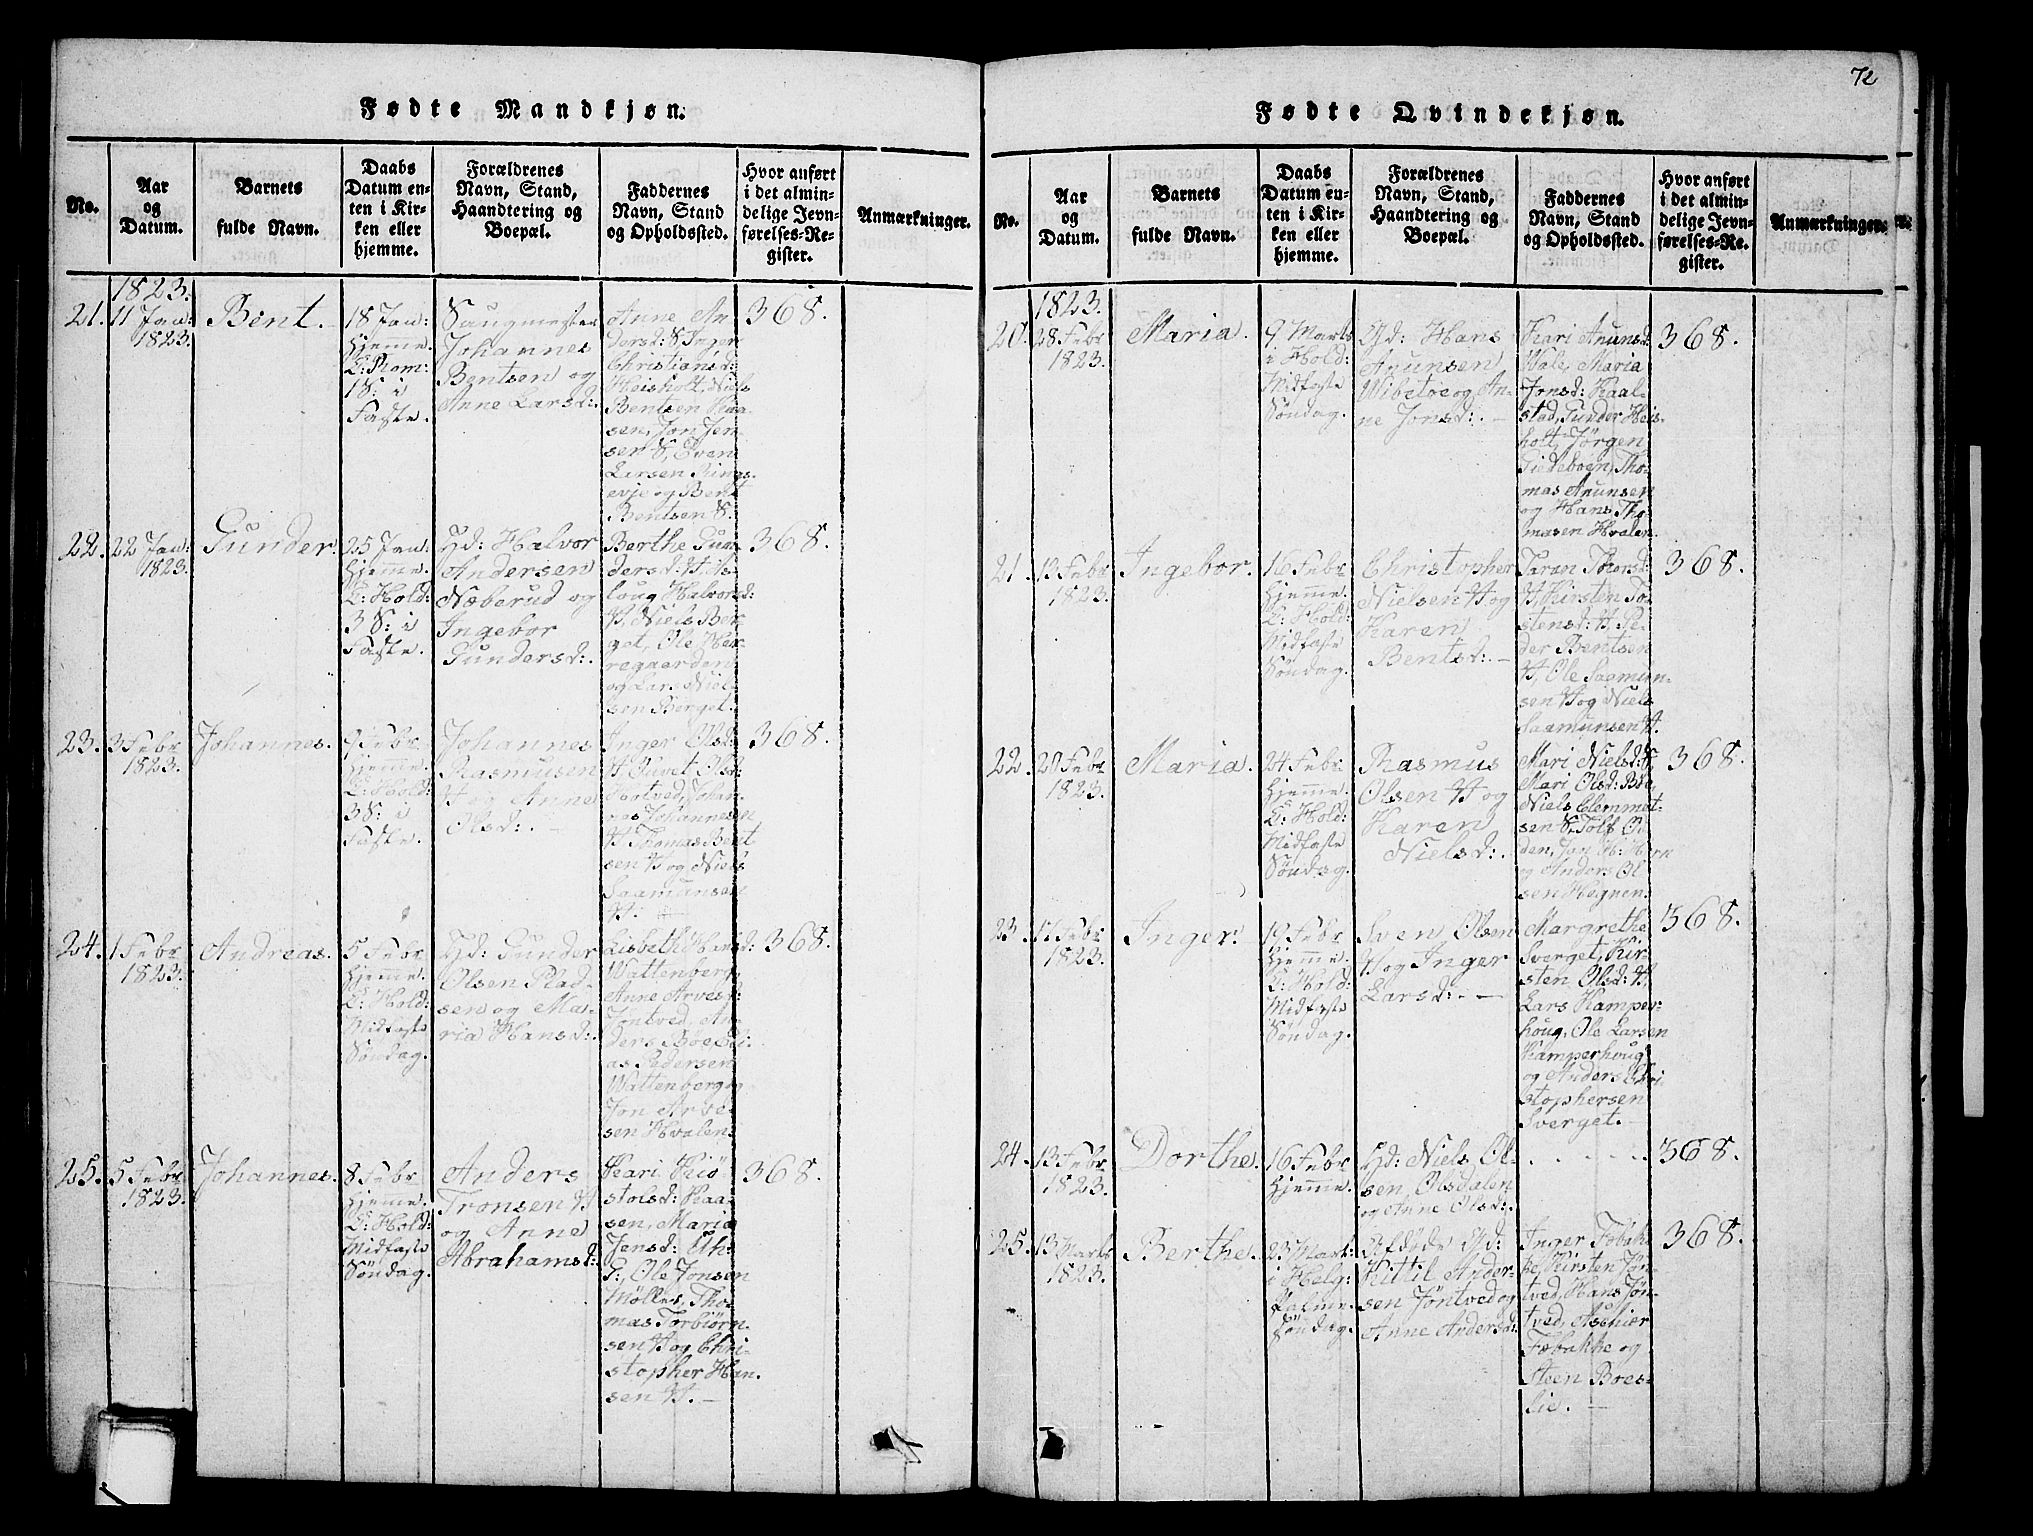 72
Fødte Mandkjøn.
No.
Aar
og
Datum.
Barnets
fulde Navn.
Daabs
Datum en-
ten i Kir-
ken eller
hjemme.
Forældrenes
Navn, Stand,
Haandtering og
Boepæl.
Faddernes
Navn, Stand
og Opholdssted.
Hvor anført
i det almin-
delige Jevn-
førelses-Re-
gister.
Anmærkninger.
21.
1823.
11 Jan:
1823.
Bent.
18 Jan:
hjeme.
18: i
Faste.
Saugmester
Johannes
Bentsen og
Anne Larsd:
Anne An
dersd: S Inger
Christiansd:
Heisholt, Niels
Bentsen Haa
sen, Jon Jen
sen S, Even
Larsen Rings
evje og Bent
Bentsen S.
368.
22.
22 Jan:
1823.
Gunder.
25 Jan:
hjeme.
C: Hold:
3 S: i
Faste.
Gd: Halvor
Andersen
Næberud og
Ingebor
Gundersd:
Berthe Gun
dersd: H As
loug Halvorsd:
H, Niels Ber
get, Ole Her
regaarden
og Lars Niel
sen Berget.
368.
23.
3 Febr
1823.
Johannes.
9 Febr
hjeme.
C: Hold:
3 S: i
Faste.
Johannes
Rasmusen
H og Anne
Olsd:
Inger Olsd:
Hotved, Johan
nes Johannesen
H Thomas Bent
sen H og Niels
Saamunsen
H.
368.
24.
1 Febr
1823.
Andreas.
5 Febr
hjeme.
C: Hold:
Midfaste
Søndag.
Gd: Gunder
Olsen Plad
sen og Ma-
ria Hansd:
Lisbeth Hansd:
Wattenberg,
Anne Arvesd:
Jøntved, An
ders Bøe Eli
as Pedersen
Wattenberg og
Jon Arve
sen Hvalen.
368.
25.
5 Febr
1823.
Johannes.
8 Febr
hjeme.
C: Hold:
Midfaste
Søndag.
Anders
Tronsen H
og Anne
Abrahamsd:
Kari Kiö-
stolsd: Haa-
sen, Maria
Jensd: Uh:
G:, Ole Jonsen
Møllen, Tho-
mas Torbiørn
sen H og Chri-
stopher Han
sen H.
368.
Fødte Qvindekjøn.
No.
Aar
og
Datum.
Barnets
fulde Navn.
Daabs
Datum en-
ten i Kir-
ken eller
hjemme.
Forældrenes
Navn, Stand,
Haandtering og
Boepæl.
Faddernes
Navn, Stand
og Opholdssted.
Hvor anført
i det almin-
delige Jevn-
førelses-Re-
gister.
Anmærkninger.
20.
1823.
28 Febr
1823.
Maria.
9 Marts
i Hold:
Midfaste
Søndag.
Gd: Hans
Anunsen
Wibetoe og An-
ne Jonsd:
Kari Anunsd:
Wale, Maria
Jonsd: Haal-
stad, Gunder Heis-
holt, Jørgen
Giedeboen, Tho-
mas Anunsen
og Hans Tho-
masen Hvalen.
368.
21.
13 Febr
1823.
Ingebor.
16 Febr
hjeme.
C: Hold:
Midfaste
Søndag.
Christopher
Nielsen H og
Karen
Bentsd:
Taran Thorsd:
H, Kirsten To-
stensd: H, Pe-
der Bentsen
H, Ole Saamun-
sen H og Niels
Saamunsen H.
368.
22.
20 Febr
1823.
Maria.
24 Febr
hjeme.
C: Hold:
Midfaste
Søndag.
Rasmus
Olsen H og
Karen
Nielsd:
Mari Nielsd:
Mari Olsd: Bøe,
Niels Clemmet-
sen S, Tolf
den, Jon H: Hern
og Anders Ol
sen Hegnen.
368.
23.
17 Febr
1823.
Inger.
19 Febr
hjeme.
C: Hold:
Midfaste
Søndag.
Sven Olsen
H og Inger
Larsd:
Margrethe
Sverget, Kir-
sten Olsd: H,
Lars Kamper-
houg, Ole Larsen
Kamperhoug
og Anders Chri
stophersen
Sverget.
368.
24.
13 Febr
1823.
Dorthe.
16 Febr
hjeme.
Gd: Niels Ol-
sen, Olsdalen
og Anne Olsd:
368.
25.
13 Marts
1823.
Berthe.
23 Mart:
i Helg:
Palme
Søndag.
Afdøde Gd:
Kittil Ander-
sen Jöntved og
Anne Andersd:
Inger Fæbak-
ke, Kirsten Jön-
tved, Hans Jön-
tved, Asenier
Fæbakke og
Steen Boes-
lie.
368.